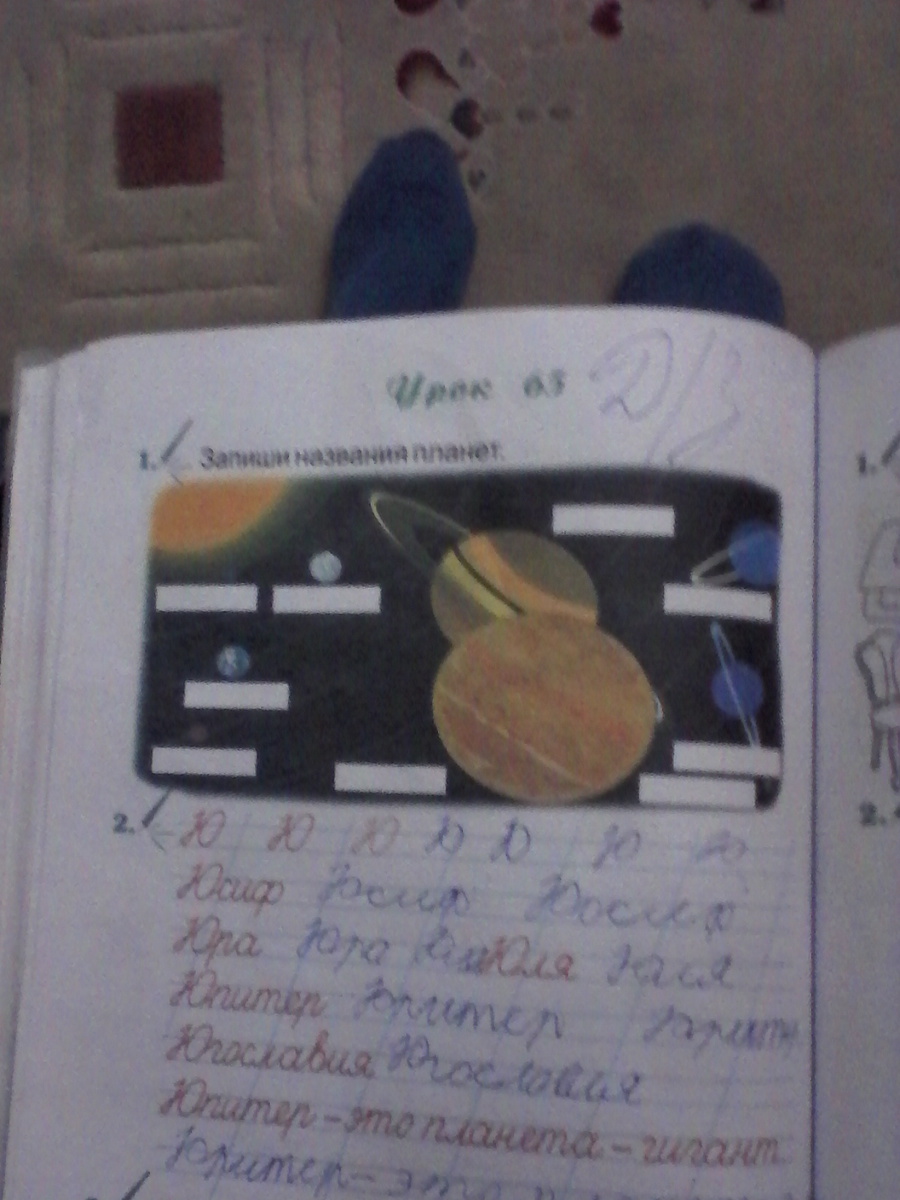 Урок 63 Д/з
1. Запиши названия планет.
1.
2. Ю Ю Ю Ю Ю Ю Ю
2.
Юсиф Юсиф Юосиф
Юра Юра Юля Юля
Юпитер Юпитер
Югославия Югославия
Юпитер – это планета – гигант
Юпитер – это